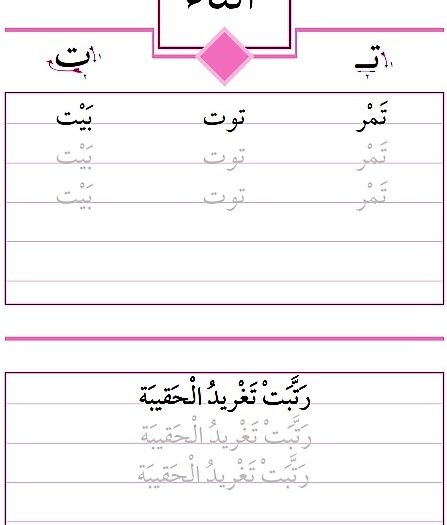 التاء
تـ ١ ٢ ت ١ ٢
تَمْر توت بَيْت
تَمْر توت بَيْت
تَمْر توت بَيْت
رَتَّبَتْ تَغْريدُ الْحَقيبَة
رَتَّبَتْ تَغْريدُ الْحَقيبَة
رَتَّبَتْ تَغْريدُ الْحَقيبَة